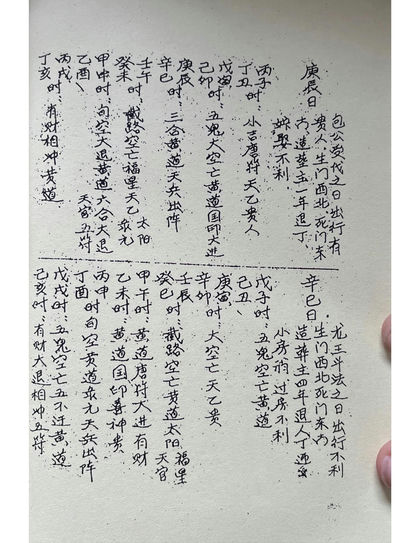 庚辰日
出行有
贵人生门西北死门东
方造葬主一年退丁
嫁娶不利
丙子时、
丁丑时、小吉唐符天乙贵人
戊寅时、五鬼大空亡黄道国印大进
己卯时、
庚辰时、
辛巳时、三合黄道天兵出阵
壬午时、截路空亡福星天乙太阳
癸未时、
甲申时、旬空大退黄道六合大退
乙酉、天官五符
丙戌时、
丁亥时、有财相冲黄道
辛巳日
龙王斗法之日出行不利
生门西北死门东方
造葬主四年退人丁
小房的过房不利
戊子时、五鬼空亡黄道
己丑、
庚寅、
辛卯时、大空亡天乙贵
壬辰、
癸巳时、截路空亡黄道太阳福星天官
甲午时、黄道唐符大进有财
乙未时、黄道国印喜神贵
丙申
丁酉时旬空黄道天兵出阵
戊戌时、五鬼空亡五不迂黄道
己亥时、有财大退相冲五符